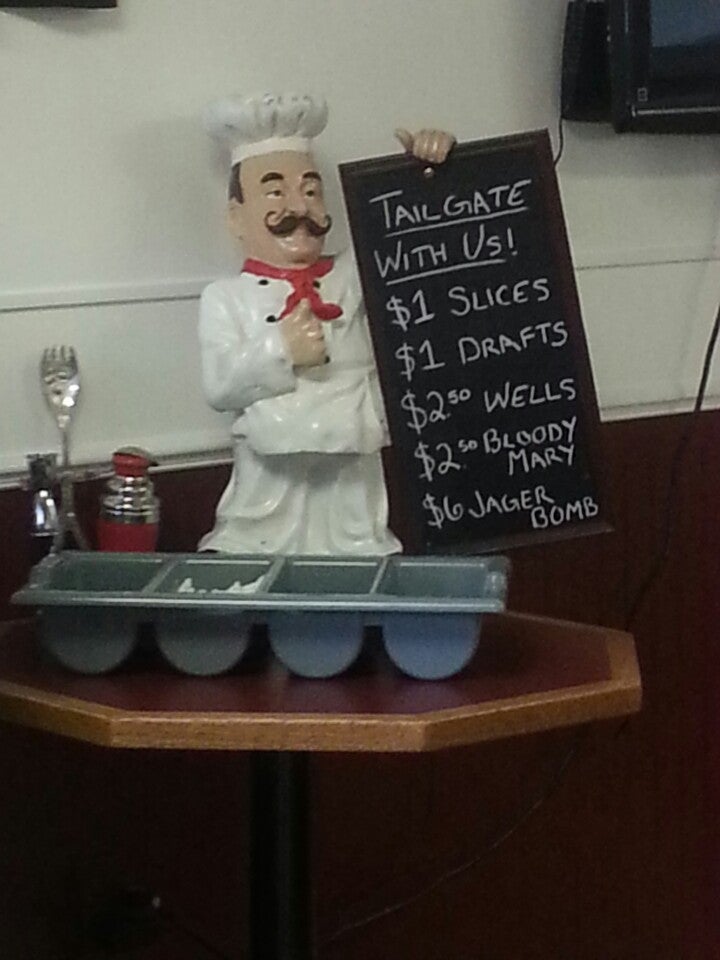 TAILGATE
WITH US!
$1 SLICES
$1 DRAFTS
$2.50 WELLS
$2.50 BLOODY
MARY
$6 JAGER
BOMB